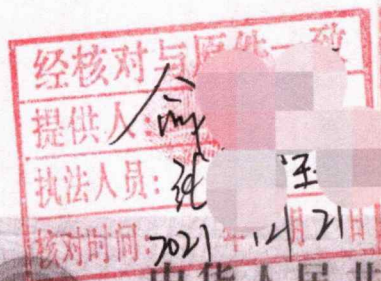 经核对与原件一致
提供人:
执法人员:
核对时间:2021年12月21日
中华人民共